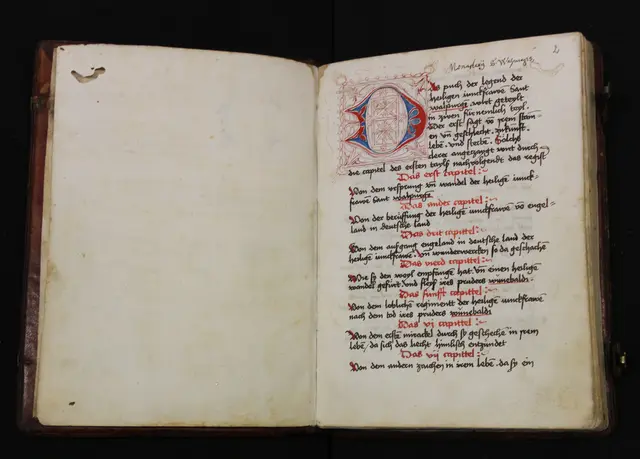 Monasterij S. Walpurgis
2
Das puch der legend der
heiligen iunckfrawe Sant
walpurge. wirt geteylt
in zwen fürnemlich teyl.
Der erst sagt vō irem stam-
en vn̄ geschlecht. zukunft.
lebē. vnd sterbē. Solche
derer angezaigt wirt durch
die capitel des ersten tayls nachvolgendt das regist
Das erst capitel :~
Von dem vrsprung vn̄ wandel der heilige iunck-
frawe Sant walpurge
Das ander capitel :~
Von der berüffung der heilige iunckfrawē vō engel-
land in deutsche land
Das drit capittel :~
Von dem aufgang engeland in deutsche land der
heilige iunckfrawe. vn̄ wunderwercken so da geschachē
Das vierd capittel :~
Wie sy den weyl empfangē hat. vn̄ einen heilige
wandel gefürt. vnd ires pruders wunebaldi
Das fünfft capittel :~
Von dem loblichē regimentt der heilige iunckfrawē
nach dem tod ires pruders wunebaldi
Das vi capittel :~
Von dem erstē mirackel durch sy geschechē in irem
lebē / da sich das liecht himlisch entzündet
Das vij capittel :~
Von dem andern zaichen in irem lebē. da sy ein